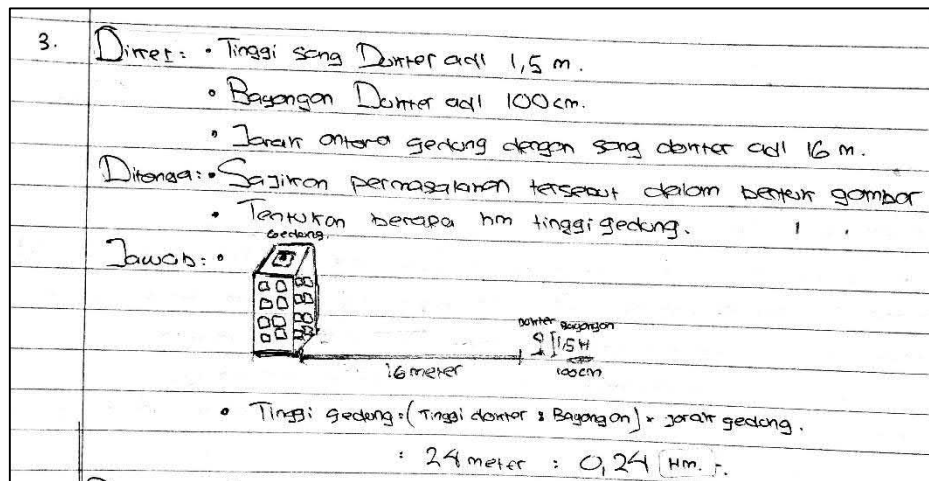 3. Diket: • Tinggi sang Dokter adl 1,5 m.
• Bayangan Dokter adl 100 cm.
• Jarak antara gedung dengan sang dokter adl 16 m.
Ditanya: • Sajikan permasalahan tersebut dalam bentuk gambar
• Tentukan berapa hm tinggi gedung.
Jawab: •
Gedung
Dokter Bayangan
1,5 M
16 meter
100 cm
• Tinggi gedung = (Tinggi dokter : Bayangan) × jarak gedung.
: 24 meter : 0,24 Hm.